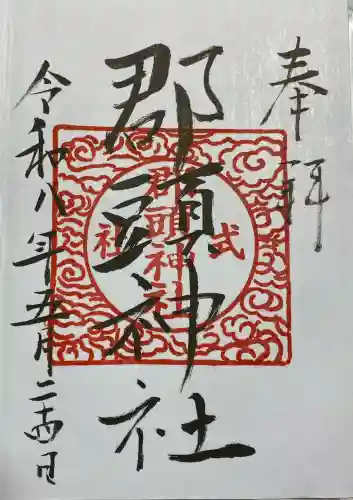 奉拝
郡頭神社
式
郡頭神社
社
令和八年五月二十四日